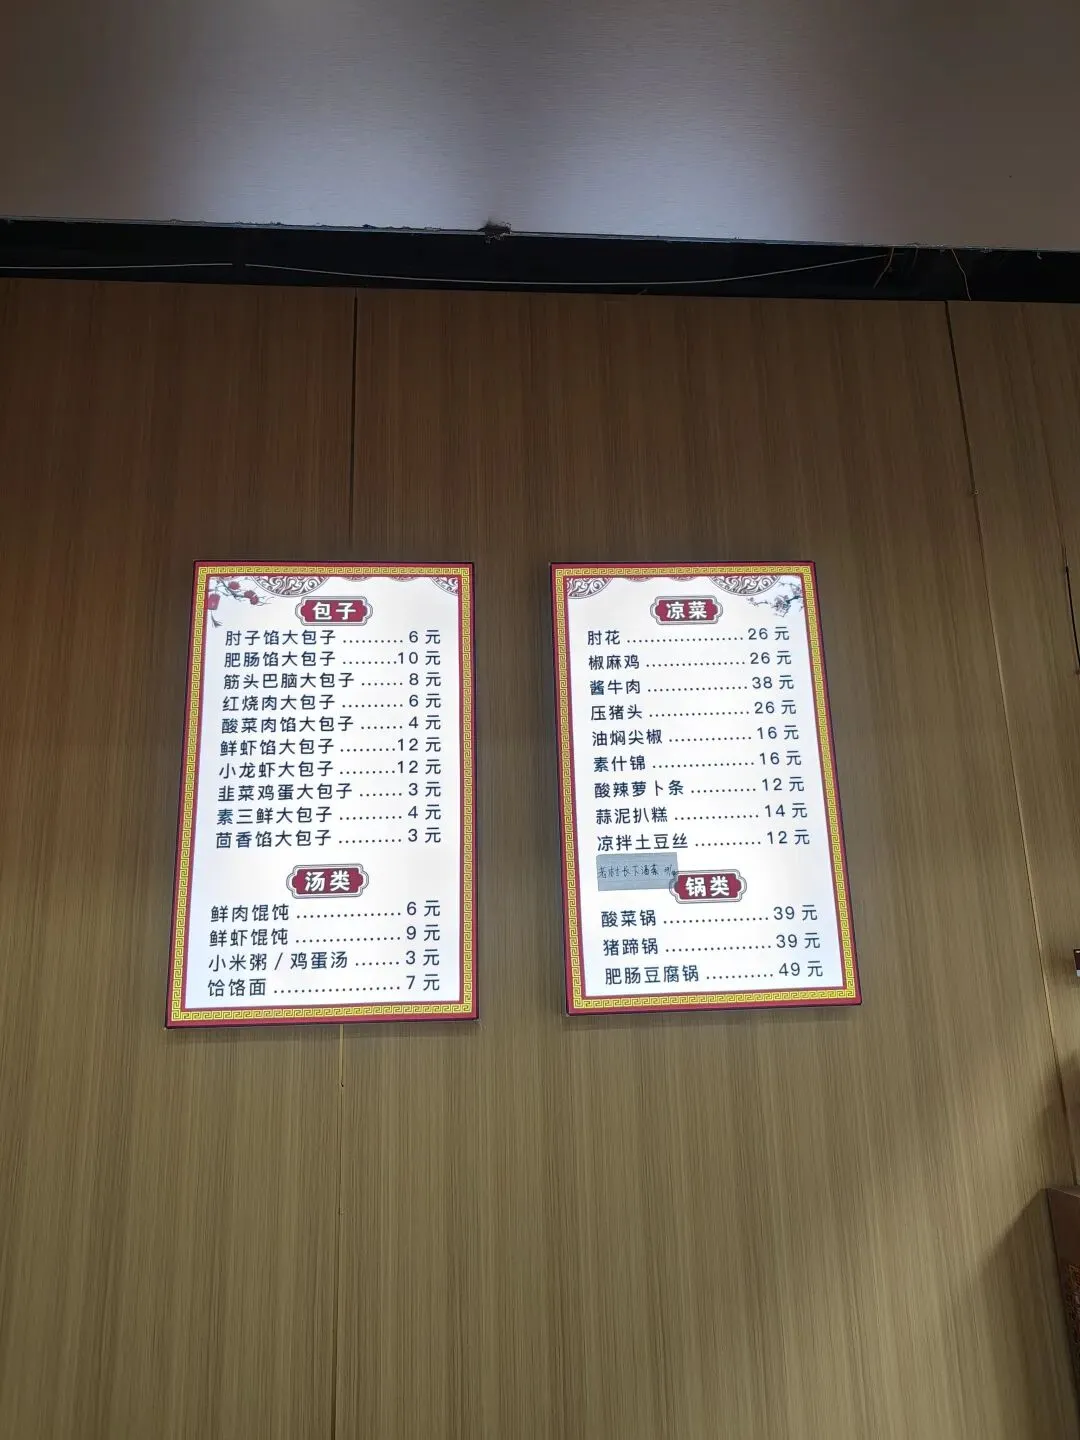 包子
肘子馅大包子..........6元
肥肠馅大包子.........10元
筋头巴脑大包子.......8元
红烧肉大包子..........6元
酸菜肉馅大包子.......4元
鲜虾馅大包子.........12元
小龙虾大包子.........12元
韭菜鸡蛋大包子.......3元
素三鲜大包子..........4元
茴香馅大包子..........3元
汤类
鲜肉馄饨................6元
鲜虾馄饨................9元
小米粥/鸡蛋汤.......3元
饸饹面...................7元
凉菜
肘花....................26元
椒麻鸡.................26元
酱牛肉.................38元
压猪头.................26元
油焖尖椒..............16元
素什锦.................16元
酸辣萝卜条...........12元
蒜泥扒糕..............14元
凉拌土豆丝...........12元
锅类
酸菜锅..................39元
猪蹄锅..................39元
肥肠豆腐锅...........49元